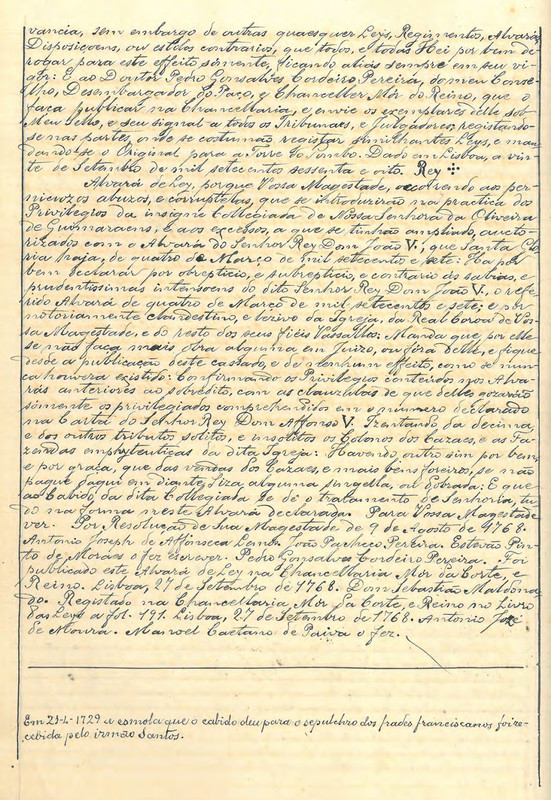 vancia, sem embargo de outras quaesquer Leys, Regimentos, Alvarás
Disposiçoens, ou estilos contrarios, que todos, e todas Hei por bem de-
rogar para este effeito sómente, ficando aliás sempre em seu vi-
gôr: E ao Doutor Pedro Gonsalves Cordeiro Pereira, do meu Conse-
lho, Desembargador do Paço, e Chanceller Mór do Reino, que o
faça publicar na Chancellaria, e envie os exemplares delle sob
Meu Sello, e seu signal a todos os Tribunaes, e Julgadores, registando-
se nas partes, onde se costumão registar similhantes Leys, e man-
dando-se o Original para a Torre do Tombo. Dado em Lisboa, a vin-
te de Setembro de mil setecentos sessenta e oito. Rey
Alvará de Ley, porque Vossa Magestade, occorrendo aos per-
niciozos abuzos, e corruptelas, que se introduzirão na practica dos
Privilegios da insigne Collegiada de Nossa Senhora da Oliveira
de Guimaraens, e aos excessos, a que se tinhão ampliado, aucto-
rizados com o Alvará do Senhor Rey Dom João V., que Santa Glo-
ria haja, de quatro de Março de mil setecento e sete: Ha por
bem declarar por obrepticio, e subrepticio, e contrario ás sabias, e
prudentissimas intensoens do dito Senhor Rey Dom João V., o refe-
rido Alvará de quatro de Março de mil setecento e sete; e por
notoriamente clandestino, e lezivo da Igreja, da Real Coroa de Vos-
sa Magestade, e do resto dos seus fiéis Vassallos: Manda que por elle
se não faça mais obra alguma em Juizo, ou fóra delle, e fique
desde a publicação deste cassado, e de nenhum effeito, como se nun-
ca houvera existido: Confirmando os Privilegios conteúdos nos Alva-
rás anteriores ao sobredito, com as clauzulas de que delles gozarão
sómente os privilegiados comprehendidos em o numero declarado
na Carta do Senhor Rey Dom Affonso V. Izentando da decima
e dos outros tributos solitos, e insolitos os Colonos dos Cazaes, e as Fa-
zendas emphyteuticas da dita Igreja: Havendo, outro sim por bem,
e por graça, que das vendas dos Cazaes, e mais bens foreiros, se não
pague daqui em diante, Siza alguma singella, ou dobrada: E que
ao Cabido da dita Collegiada se dê o tratamento de Senhoria, tu-
do na forma neste Alvará declarada. Para Vossa Magestade
ver. Por Resolução de Sua Magestade de 9 de Agosto de 1768.
Antonio Joseph de Affonseca Lemos. João Pacheco Pereira. Estevão Pin-
to de Moraes o fez escrever. Pedro Gonsalves Cordeiro Pereira. Foi
publicado este Alvará de Ley na Chancellaria Mór da Corte, e
Reino. Lisboa, 27 de Setembro de 1768. Dom Sebastião Maldona-
do. Registado na Chancellaria Mór da Corte, e Reino no Livro
das Leys a fol. 191. Lisboa, 27 de Setembro de 1768. Antonio José
de Moura. Manoel Caetano de Paiva o fez.
Em 29-4-1729 a esmola que o cabido deu para o sepulchro dos frades franciscanos foi re-
cebida pelo irmão Santos.